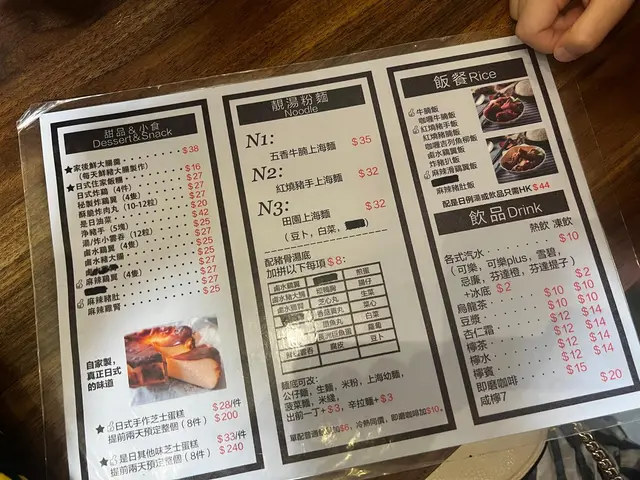 甜品&小食
Dessert&Snack
★家後鮮大腸醬 $38
(每天鮮豬大腸製作)
★日式住家飯糰 $16
日式炸鷄 (4件) $27
秘製炸鷄翼 (4隻) $27
酥脆炸肉丸 (10-12粒) $27
是日油菜 $20
淨豬手 (5塊) $42
湯/炸小雲吞 (12粒) $25
鹵水鷄翼 (4隻) $27
鹵水豬大腸 $25
麻辣鷄翼 (4隻) $27
麻辣豬肚 $27
麻辣雞腎 $25
自家製，
真正日式
的味道
★日式手作芝士蛋糕 $28/件
提前兩天預定整個 (8件) $200
★是日其他味芝士蛋糕 $33/件
提前兩天預定整個 (8件) $240
靚湯粉麵
Noodle
N1:
五香牛腩上海麵 $35
N2:
紅燒豬手上海麵 $32
N3:
田園上海麵 $32
(豆卜，白菜，
配豬骨湯底
加拼以下每項 $8:
鹵水鷄翼 煎蛋
鹵水豬大腸 腸仔
鹵水 芝心丸 生菜
香菇貢丸 菜心
墨魚丸 白菜
蘿蔔
鮮 雲吞 腐皮 豆卜
麵底可改:
公仔麵，生麵，米粉，上海幼麵，
菠菜麵，米綫，
出前一丁+$3，辛拉麵+$3
單配普通 $6，冷熱同價，即磨咖啡加$10。
飯餐Rice
牛腩飯
咖喱牛腩飯
紅燒豬手飯
紅燒豬腩飯
咖喱吉列魚柳飯
鹵水鷄翼飯
炸豬扒飯
麻辣滷鷄翼飯
麻辣豬肚飯
配是日例湯或飲品只需HK $44
飲品Drink
熱飲 凍飲
各式汽水 $10
(可樂，可樂plus，雪碧，
忌廉，芬達橙，芬達提子)
+冰底 $2 $2
烏龍茶 $10 $10
豆漿 $12 $14
杏仁霜 $12 $14
檸茶 $12 $14
檸水 $12 $14
檸賓 $15
即磨咖啡 $20
咸檸7